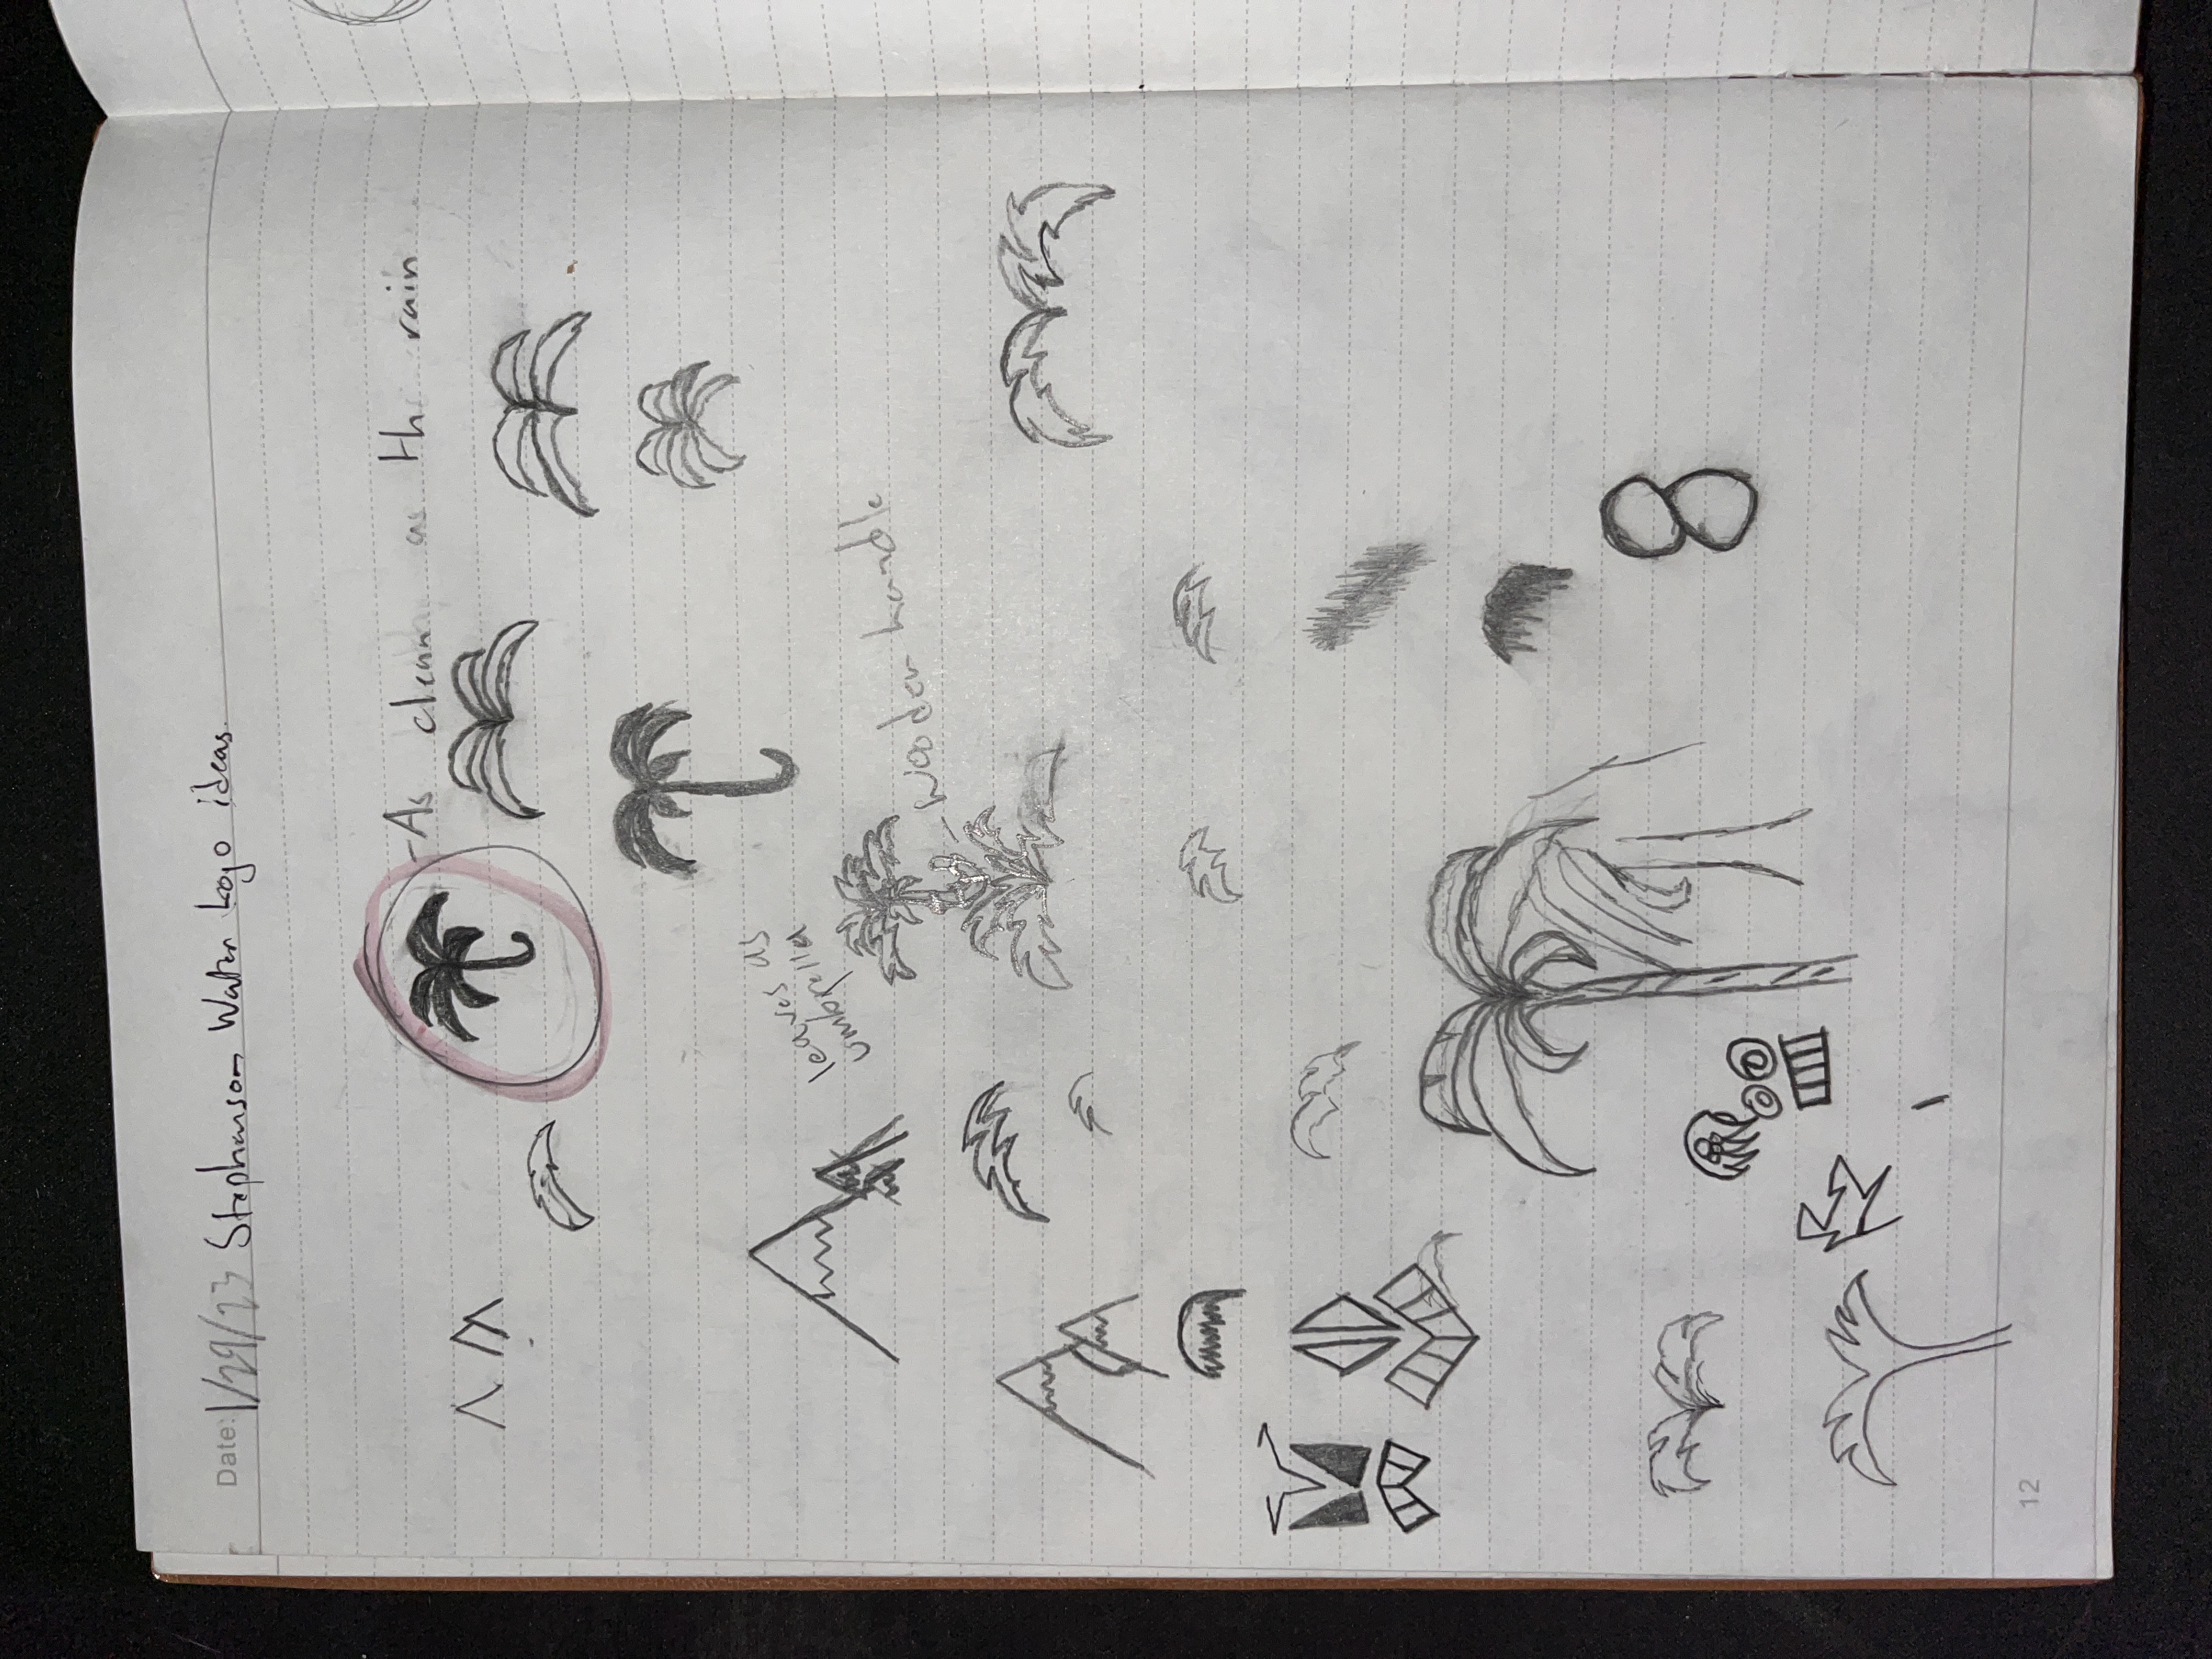 Date: 1/29/23 Stephenson Water Logo ideas.
As clean as th rain
leaves as
umbrella
Wooden handle
12